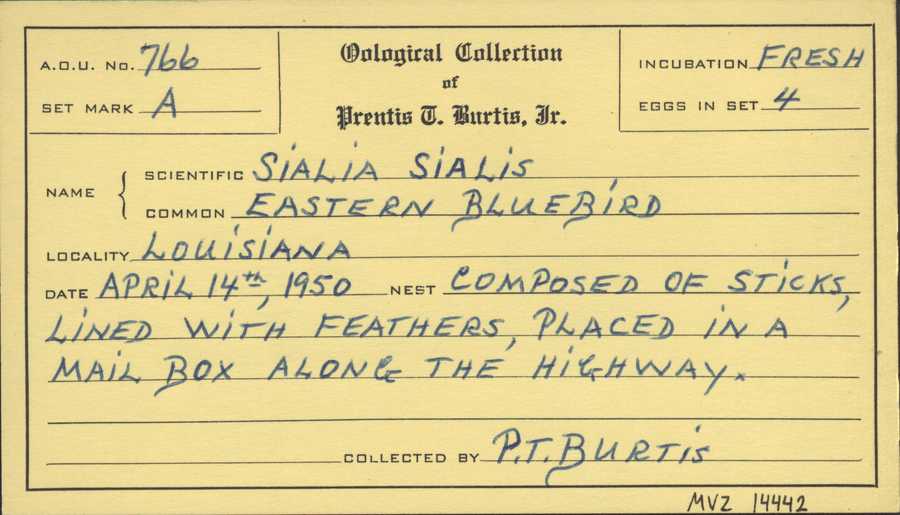 A.O.U. No. 766
SET MARK A
Oological Collection
of
Prentis T. Burtis, Jr.
INCUBATION FRESH
EGGS IN SET 4
NAME { SCIENTIFIC SIALIA SIALIS
COMMON EASTERN BLUEBIRD
LOCALITY LOUISIANA
DATE APRIL 14th, 1950 NEST COMPOSED OF STICKS,
LINED WITH FEATHERS, PLACED IN A
MAIL BOX ALONG THE HIGHWAY.
COLLECTED BY P.T. BURTIS
MVZ 14442